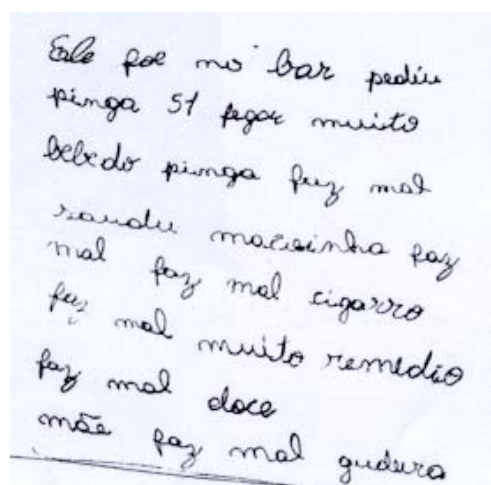 Ele foe no bar pediu
pinga 51 fegoe muito
bebedo pinga fuz mal
saudu macoinha faz
mal faz mal cigarro
fuz mal muito remedio
faz mal doce
mãe faz mal gudura